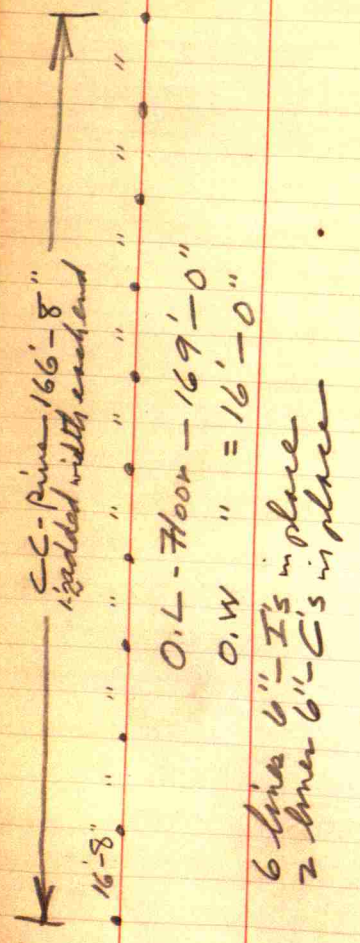 CC-Pins-166'-8"
added width each end
16'-8" " " " " " " " " "
O.L-Floor-169'-0"
O.W " =16'-0"
6 lines 6"-I's in place
2 lines 6"-C's in place